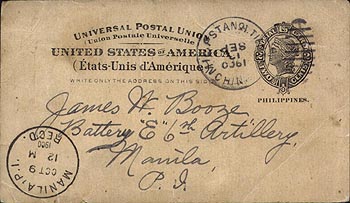 UNIVERSAL POSTAL UNION
(Union Postale Universelle)
UNITED STATES OF AMERICA.
(États-Unis d'Amérique)
WHITE ONLY THE ADDRESS ON THIS SIDE
PHILIPPINES.
James W. Booze
Battery "E" 6th Artillery,
Manila,
P. I.
MANILA P. I.
OCT 9
12 M
1900
REC'D.
SEP
1900
CHINA